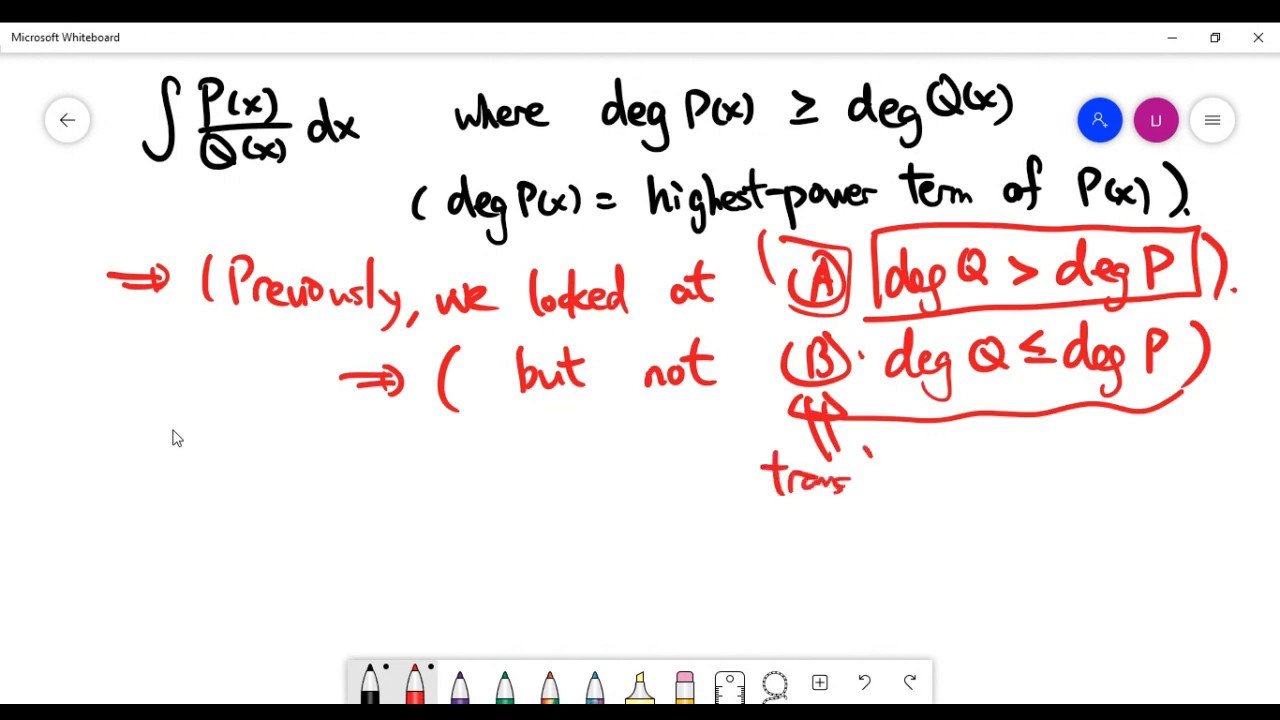 Microsoft Whiteboard
∫ P(x)/Q(x) dx where deg P(x) ≥ deg Q(x)
( deg P(x) = highest-power term of P(x) ).
⇒ ( Previously, we looked at ( (A) deg Q > deg P ).
⇒ ( but not (B). deg Q ≤ deg P )
trans
IJ